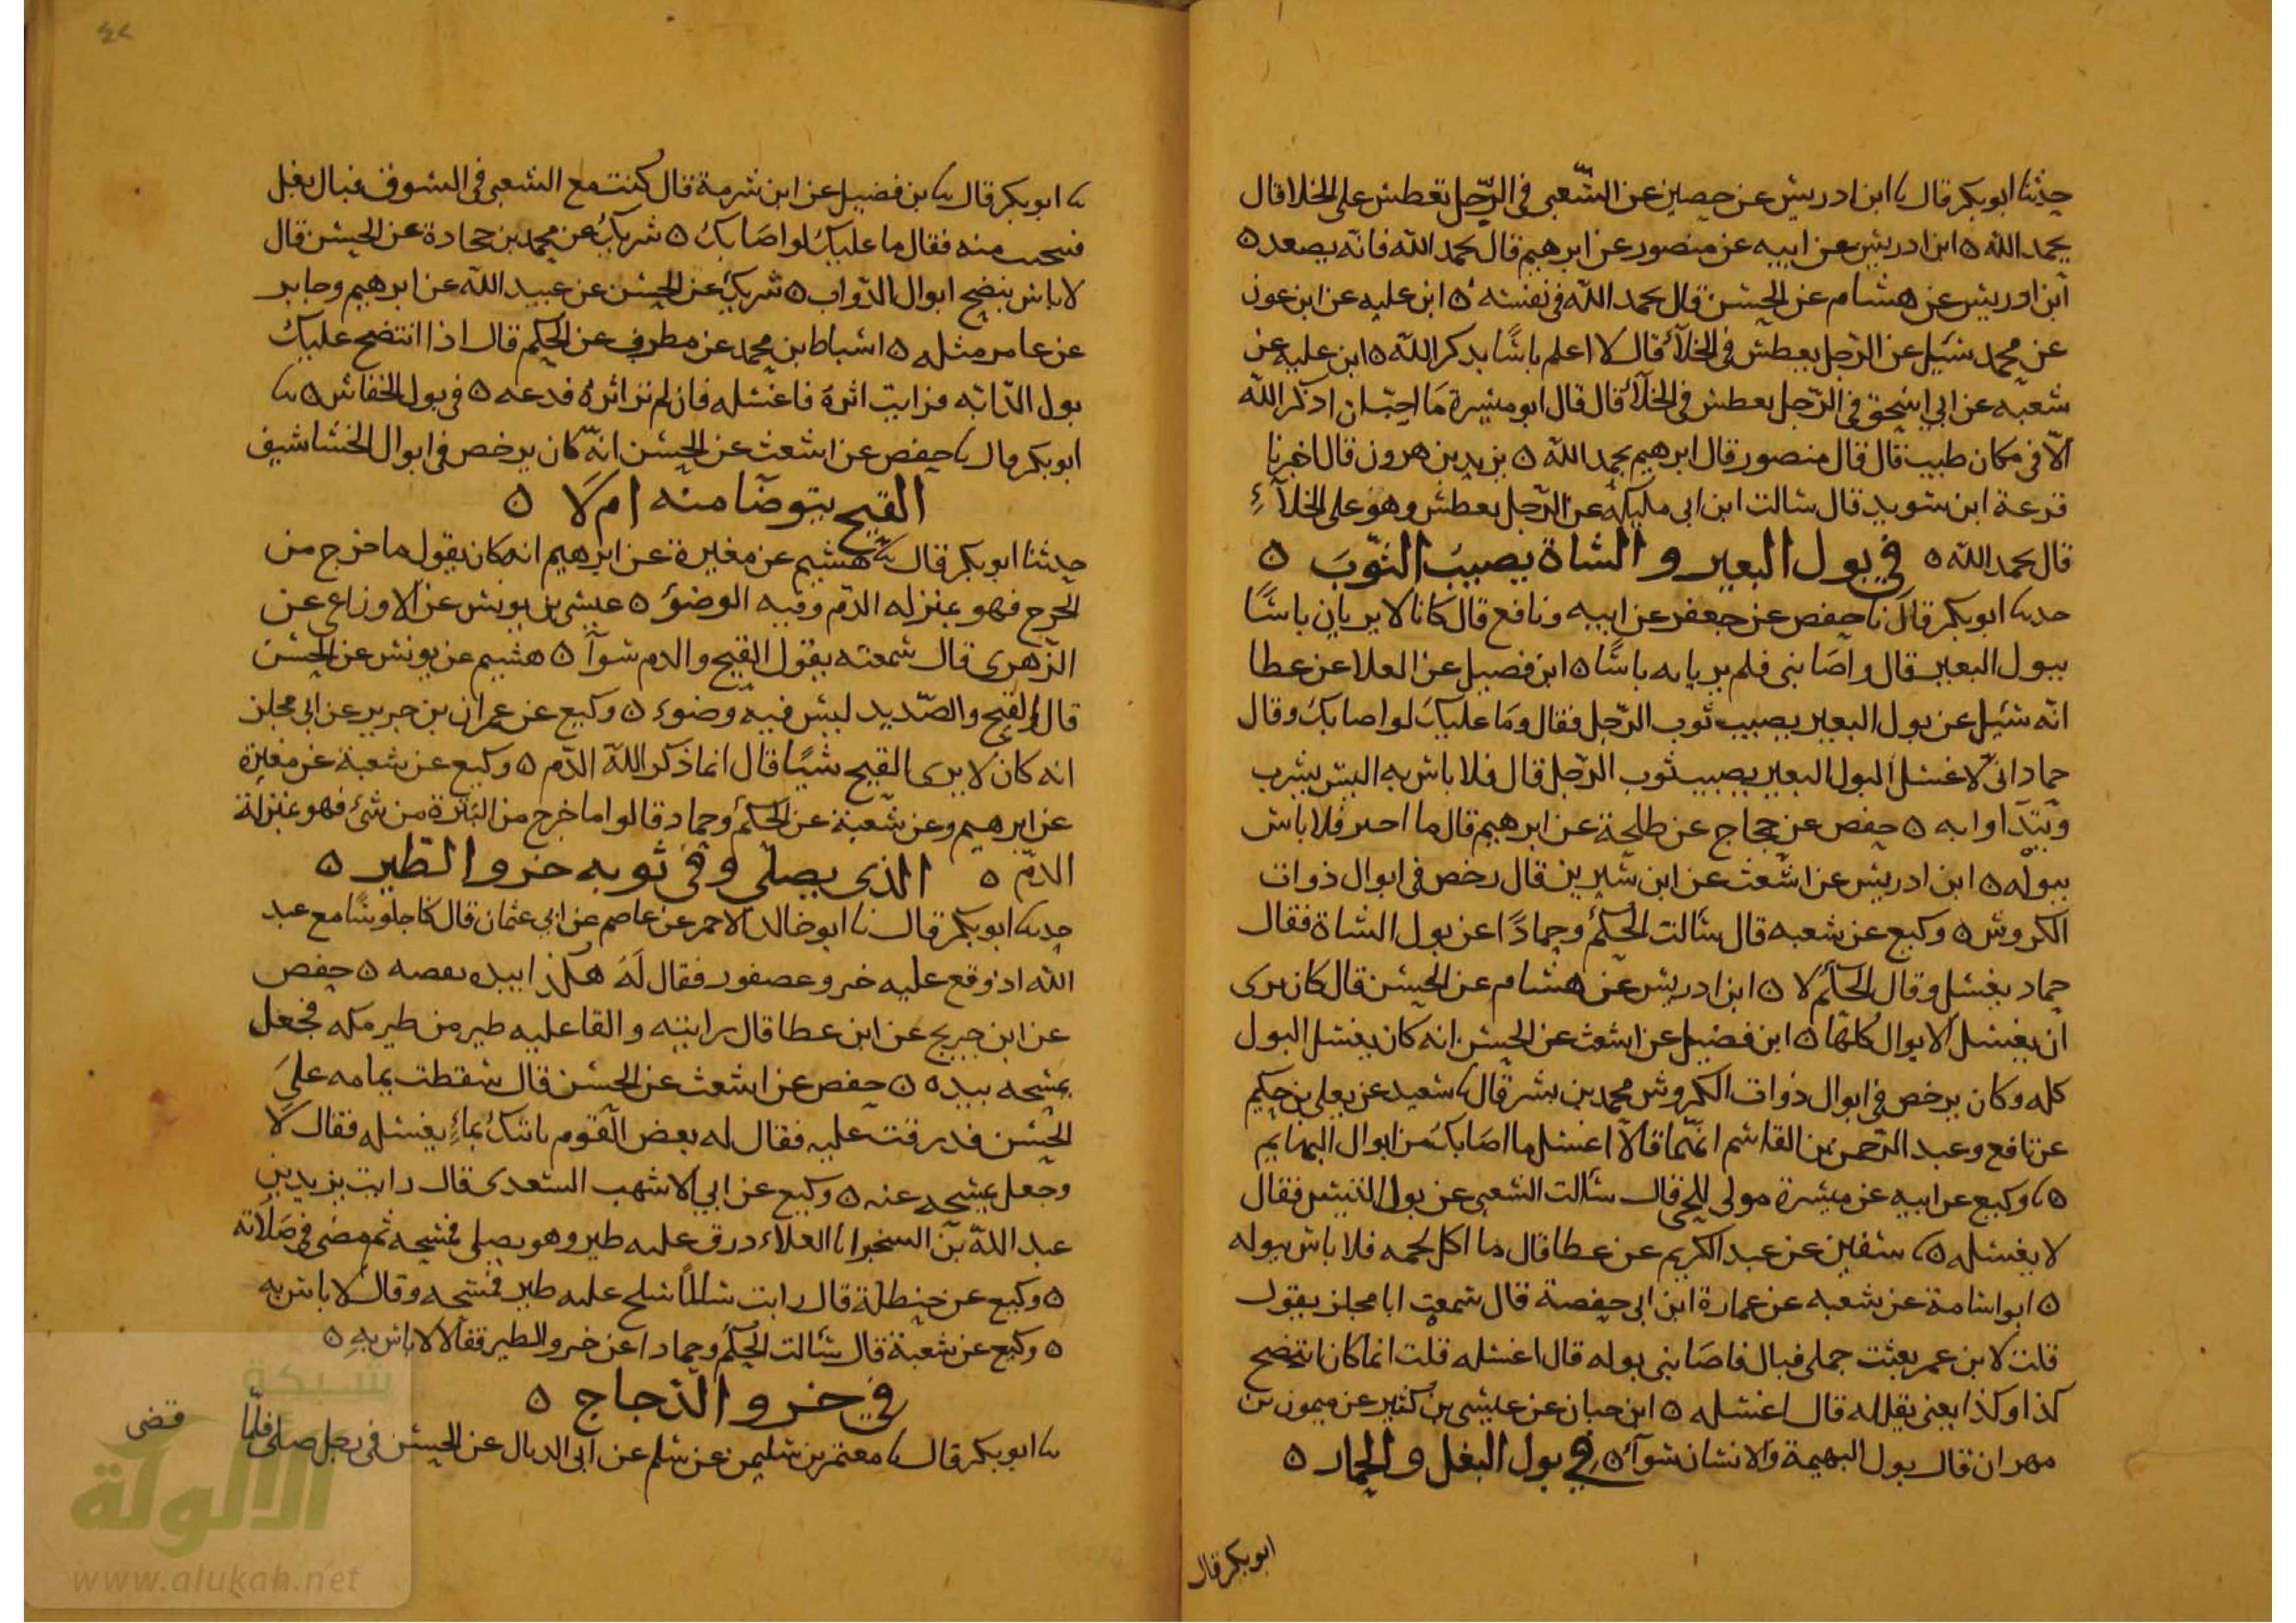 حدثنا ابوبكر قال نا ابن ادريس عن حصين عن الشعبي في الرجل يعطس على الخلا قال
يحمد الله ه ابن ادريس عن ابيه عن منصور عن ابرهيم قال يحمد الله فانه يصعد ه
ابن ادريس عن هشام عن الحسن قال يحمد الله في نفسه ه ابن عليه عن ابن عون
عن محمد سئيل عن الرجل يعطس في الخلاء قال لا اعلم باسا بذكر الله ه ابن عليه عن
شعبه عن ابي اسحق في الرجل يعطس في الخلاء قال قال ابو ميسرة ما احب ان اذكر الله
الا في مكان طيب قال قال منصور قال ابرهيم يحمد الله ه يزيد بن هرون قال اخبرنا
قزعة ابن سويد قال سالت ابن ابي مليكه عن الرجل يعطس وهو على الخلاء
قال يحمد الله ه في بول البعير و الشاة يصيب الثوب ه
حدثنا ابوبكر قال نا حفص عن جعفر عن ابيه ونافع قال كانا لا يريان باسا
ببول البعير قال واصابني فلم يريا به باسا ه ابن فضيل عن العلا عن عطا
انه سئيل عن بول البعير يصيب ثوب الرجل فقال وما عليك لو اصابك وقال
حماد اني لاغسل البول البعير يصيب ثوب الرجل قال فلا باس به اليس يشرب
ويتداوا به ه حفص عن حجاج عن طلحة عن ابرهيم قال ما اجتر فلا باس
ببوله ه ابن ادريس عن اشعث عن ابن سيرين قال رخص في ابوال ذوات
الكروش ه وكيع عن شعبه قال سالت الحكم وحمادا عن بول الشاة فقال
حماد يغسل وقال الحكم لا ه ابن ادريس عن هشام عن الحسن قال كان يرى
ان يغسل الابوال كلها ه ابن فضيل عن اشعث عن الحسن انه كان يغسل البول
كله وكان يرخص في ابوال ذوات الكروش محمد بن بشر قال نا سعيد عن يعلي بن حكيم
عن نافع وعبد الرحمن بن القاسم انهما قالا اغسل ما اصابك من ابوال البهايم
ه نا وكيع عن ابيه عن ميسرة مولى للحي قال سالت الشعبي عن بول التيس فقال
لا يغسله ه نا سفين عن عبد الكريم عن عطا قال ما اكل لحمه فلا باس ببوله
ه ابو اسامة عن شعبه عن عمارة ابن ابي حفصة قال سمعت ابا مجلز يقول
قلت لابن عمر بعثت جملي فبال فاصابني بوله قال اغسله قلت انما كان انتضح
كذا وكذا يعني يقلله قال اغسله ه ابن حبان عن عيسى بن كثير عن ميمون بن
مهران قال بول البهيمة والانسان سوآء ه في بول البغل و الحمار ه
ابوبكر قال
نا ابوبكر قال نا بن فضيل عن ابن شبرمة قال كنت مع الشعبي في السوق فبال بغل
فتنحيت منه فقال ما عليك لو اصابك ه شريك عن محمد بن جحادة عن الحسن قال
لا باس بنضح ابوال الدواب ه شريك عن الحسن عن عبيد الله عن ابرهيم وجابر
عن عامر مثله ه اسباط ابن محمد عن مطرف عن الحكم قال اذا انتضح عليك
بول الدابه فرايت اثره فاغسله فان لم تر اثره فدعه ه في بول الخفاش ه نا
ابوبكر قال نا حفص عن اشعث عن الحسن انه كان يرخص في ابوال الخشاشيف
القيح يتوضا منه ام لا ه
حدثنا ابوبكر قال نا هشيم عن مغيرة عن ابرهيم انه كان يقول ما خرج من
الجرح فهو بمنزله الدم وفيه الوضوء ه عيسى بن يونس عن الاوزاعي عن
الزهري قال سمعته يقول القيح والدم سوآ ه هشيم عن يونس عن الحسن
قال القيح والصديد ليس فيه وضوء ه وكيع عن عمران بن جرير عن ابي مجلز
انه كان لا يرى القيح شيا قال انما ذكر الله الدم ه وكيع عن شعبة عن مغيرة
عن ابرهيم وعن شعبة عن الحكم وحماد قالوا ما خرج من البثرة من شئ فهو بمنزلة
الدم ه الذي يصلي وفي ثوبه خرو الطير ه
حدثنا ابوبكر قال نا ابو خالد الاحمر عن عاصم عن ابي عثمان قال كنا جلوسا مع عبد
الله اذ وقع عليه خرو عصفور فقال له هكذا بيده نفضه ه حفص
عن ابن جريج عن ابن عطا قال رايته والقا عليه طير من طير مكه فجعل
يمسحه بيده ه حفص عن اشعث عن الحسن قال سقطت يمامه على
الحسن فذرقت عليه فقال له بعض القوم ناتيك بماء يغسله فقال لا
وجعل يمسحه عنه ه وكيع عن ابي الاشهب السعدي قال رايت يزيد بن
عبد الله بن الشخير ابا العلاء ذرق عليه طير وهو يصلي فمسحه ثم مضى في صلاته
ه وكيع عن حنظلة قال رايت سالما سلح عليه طير فمسحه وقال لا باس به
ه وكيع عن شعبة قال سالت الحكم وحمادا عن خرو الطير فقالا لا باس به ه
في خرو الدجاج ه
نا ابوبكر قال نا معتمر بن سليمن عن سلم عن ابي الديال عن الحسن في رجل صلى فلما
قضى
شبكة
الألوكة
www.alukah.net